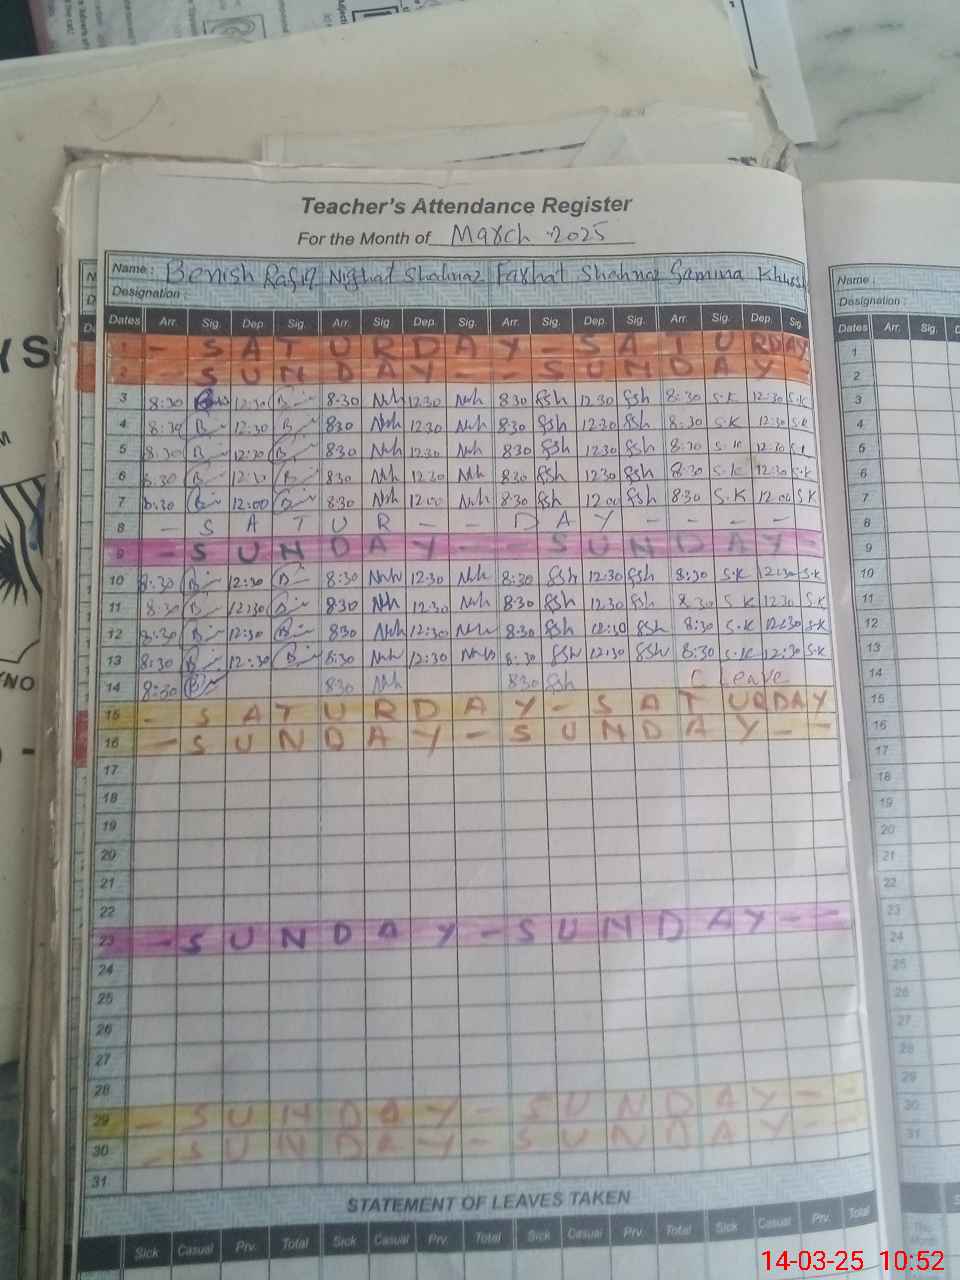 Teacher's Attendance Register
For the Month of March 2025
Name : Benish Rafiq Nighat Shahnaz Farhat Shahnaz Samina Khhos
Designation :
Dates Arr. Sig. Dep. Sig. Arr. Sig. Dep. Sig. Arr. Sig. Dep. Sig. Arr. Sig. Dep. Sig.
1 - S A T U R D A Y - S A T U R D A Y
2 - S U N D A Y - - S U N D A Y -
3 8:30 12:30 8:30 Nsh 12:30 Nsh 8:30 fsh 12:30 fsh 8:30 S.K 12:30 S.K
4 8:30 12:30 8:30 Nsh 12:30 Nsh 8:30 fsh 12:30 fsh 8:30 S.K 12:30 S.K
5 8:30 12:30 8:30 Nsh 12:30 Nsh 8:30 fsh 12:30 fsh 8:30 S.K 12:30 S.K
6 8:30 12:30 8:30 Nsh 12:30 Nsh 8:30 fsh 12:30 fsh 8:30 S.K 12:30 S.K
7 8:30 12:00 8:30 Nsh 12:00 Nsh 8:30 fsh 12:00 fsh 8:30 S.K 12:00 S.K
8 - S A T U R - - D A Y - - - -
9 - S U N D A Y - - S U N D A Y -
10 8:30 12:30 8:30 Nsh 12:30 Nsh 8:30 fsh 12:30 fsh 8:30 S.K 12:30 S.K
11 8:30 12:30 8:30 Nsh 12:30 Nsh 8:30 fsh 12:30 fsh 8:30 S.K 12:30 S.K
12 8:30 12:30 8:30 Nsh 12:30 Nsh 8:30 fsh 12:30 fsh 8:30 S.K 12:30 S.K
13 8:30 12:30 8:30 Nsh 12:30 Nsh 8:30 fsh 12:30 fsh 8:30 S.K 12:30 S.K
14 8:30 8:30 Nsh 8:30 fsh C Leave
15 - S A T U R D A Y - S A T U R D A Y
16 - S U N D A Y - S U N D A Y - -
17
18
19
20
21
22
23 - S U N D A Y - S U N D A Y - -
24
25
26
27
28
29 - S U N D A Y - S U N D A Y - -
30 - S U N D A Y - S U N D A Y - -
31
STATEMENT OF LEAVES TAKEN
Sick Casual Prv. Total Sick Casual Prv. Total Sick Casual Prv. Total Sick Casual Prv. Total
Name :
Designation :
Dates Arr. Sig. Dep.
1
2
3
4
5
6
7
8
9
10
11
12
13
14
15
16
17
18
19
20
21
22
23
24
25
26
27
28
29
30
31
14-03-25 10:52